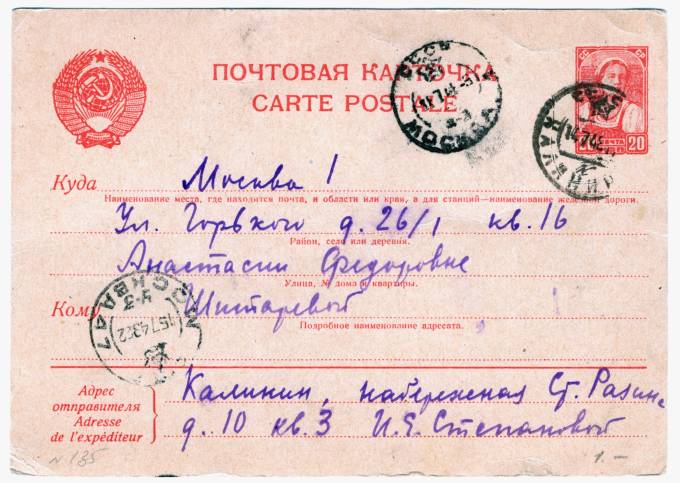 ПОЧТОВАЯ КАРТОЧКА
CARTE POSTALE
ПОЧТА
20
МОСКВА
КАЛИНИН
Куда Москва 1
Наименование места, где находится почта, и области или края, а для станций—наименование железной дороги.
Ул. Горького д. 26/1 кв. 16
Район, село или деревня.
Анастасии Федоровне
Улица, № дома и квартиры.
Кому Шитаревой
Подробное наименование адресата.
МОСКВА 47
Адрес отправителя
Adresse de l'expéditeur
Калинин, набережная Ст. Разина
д. 10 кв. 3 И.Е. Степановой
N 185
1.-